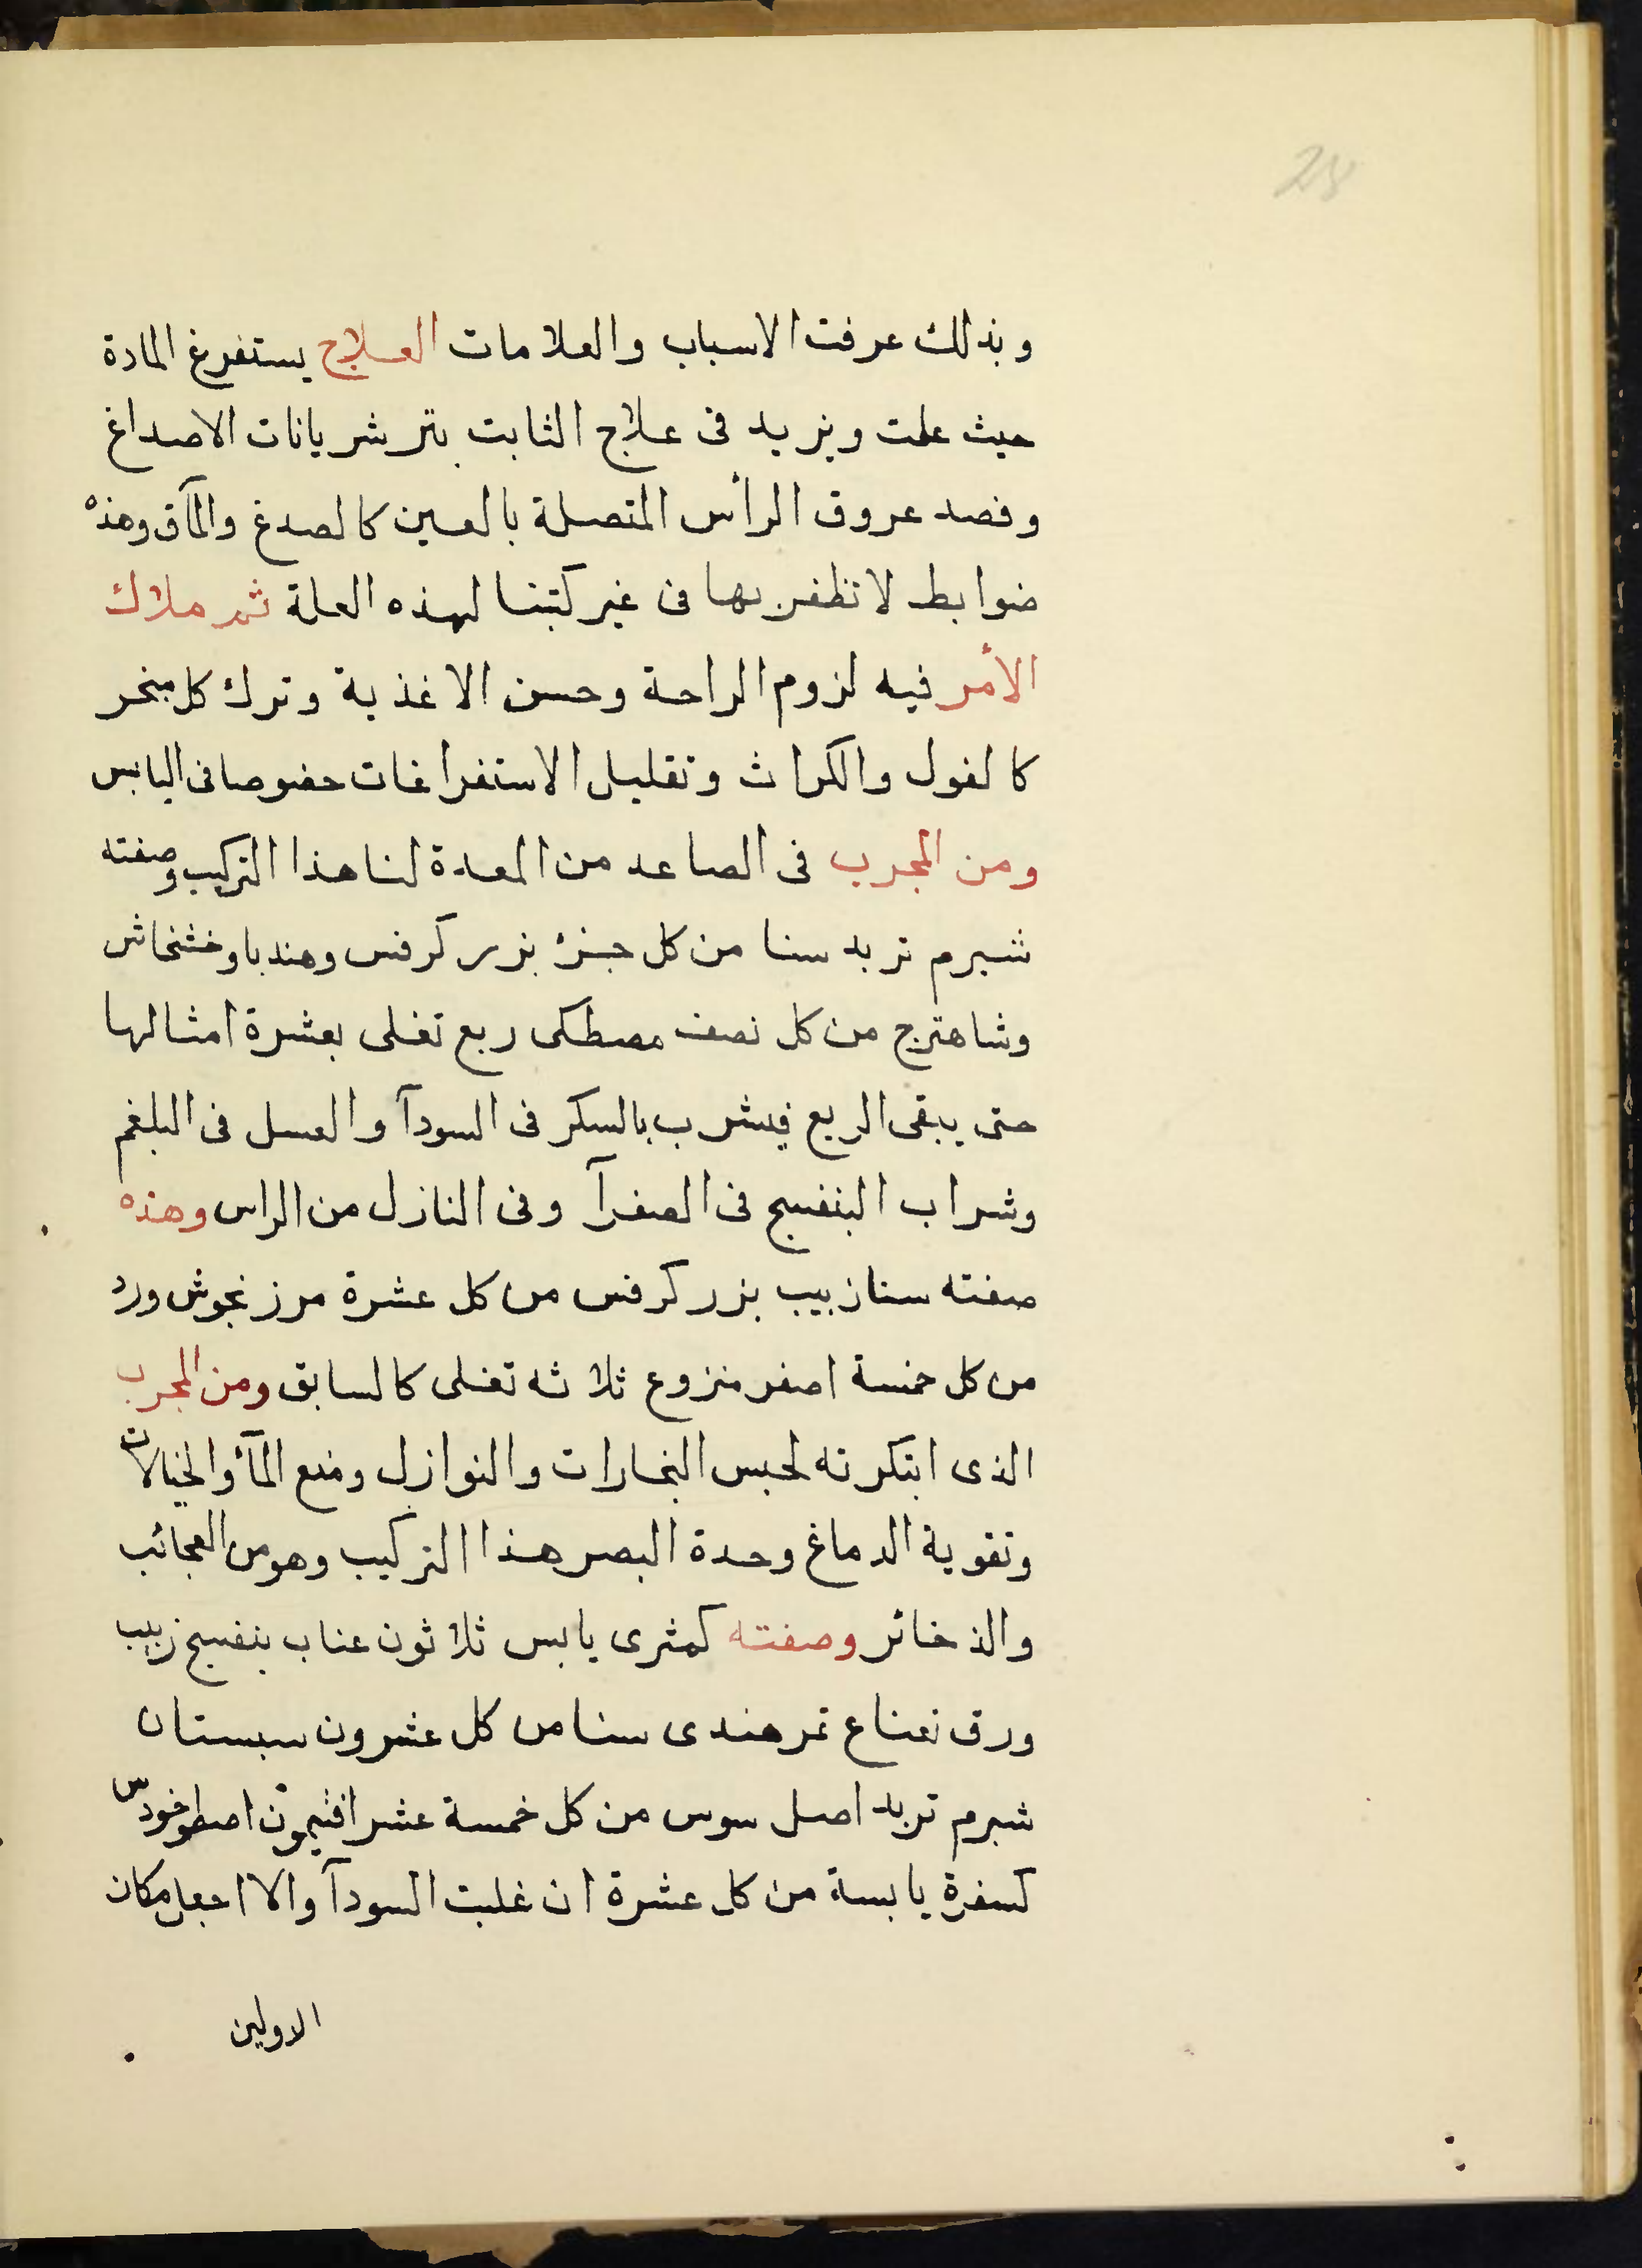 28
وبذلك عرفت الاسباب والعلامات العلاج يستفرغ المادة
حيث علمت ويزيد فى علاج الثابت بتر شريانات الاصداغ
وفصد عروق الرأس المتصلة بالعين كالصدغ والمآق وهذه
ضوابط لا تظفر بها فى غير كتبنا لهذه العلة ثم ملاك
الأمر فيه لزوم الراحة وحسن الاغذية وترك كل مبخر
كالفول والكراث وتقليل الاستفراغات خصوصا فى اليابس
ومن المجرب فى الصاعد من المعدة لنا هذا التركيب وصفته
شبرم تربد سنا من كل جزئ بزر كرفس وهندبا وخشخاش
وشاهترج من كل نصف مصطكى ربع تغلى بعشرة امثالها
حتى يبقى الربع فيشرب بالسكر فى السودآ والعسل فى البلغم
وشراب البنفسج فى الصفرآ وفى النازل من الراس وهذه
صفته سنا زبيب بزر كرفس من كل عشرة مرزنجوش ورد
من كل خمسة اصفر منزوع ثلاثه تغلى كالسابق ومن المجرب
الذى ابتكرته لحبس البخارات والنوازل ومنع المآ والخيالات
وتقوية الدماغ وحدة البصر هذا التركيب وهو من العجائب
والذخائر وصفته كمثرى يابس ثلاثون عناب بنفسج زبيب
ورق نعناع تمرهندى سنا من كل عشرون سبستان
شبرم تربد اصل سوس من كل خمسة عشر افتيمون اصطوخودس
كسفرة يابسة من كل عشرة ان غلبت السودآ والا اجعل مكان
الاولين